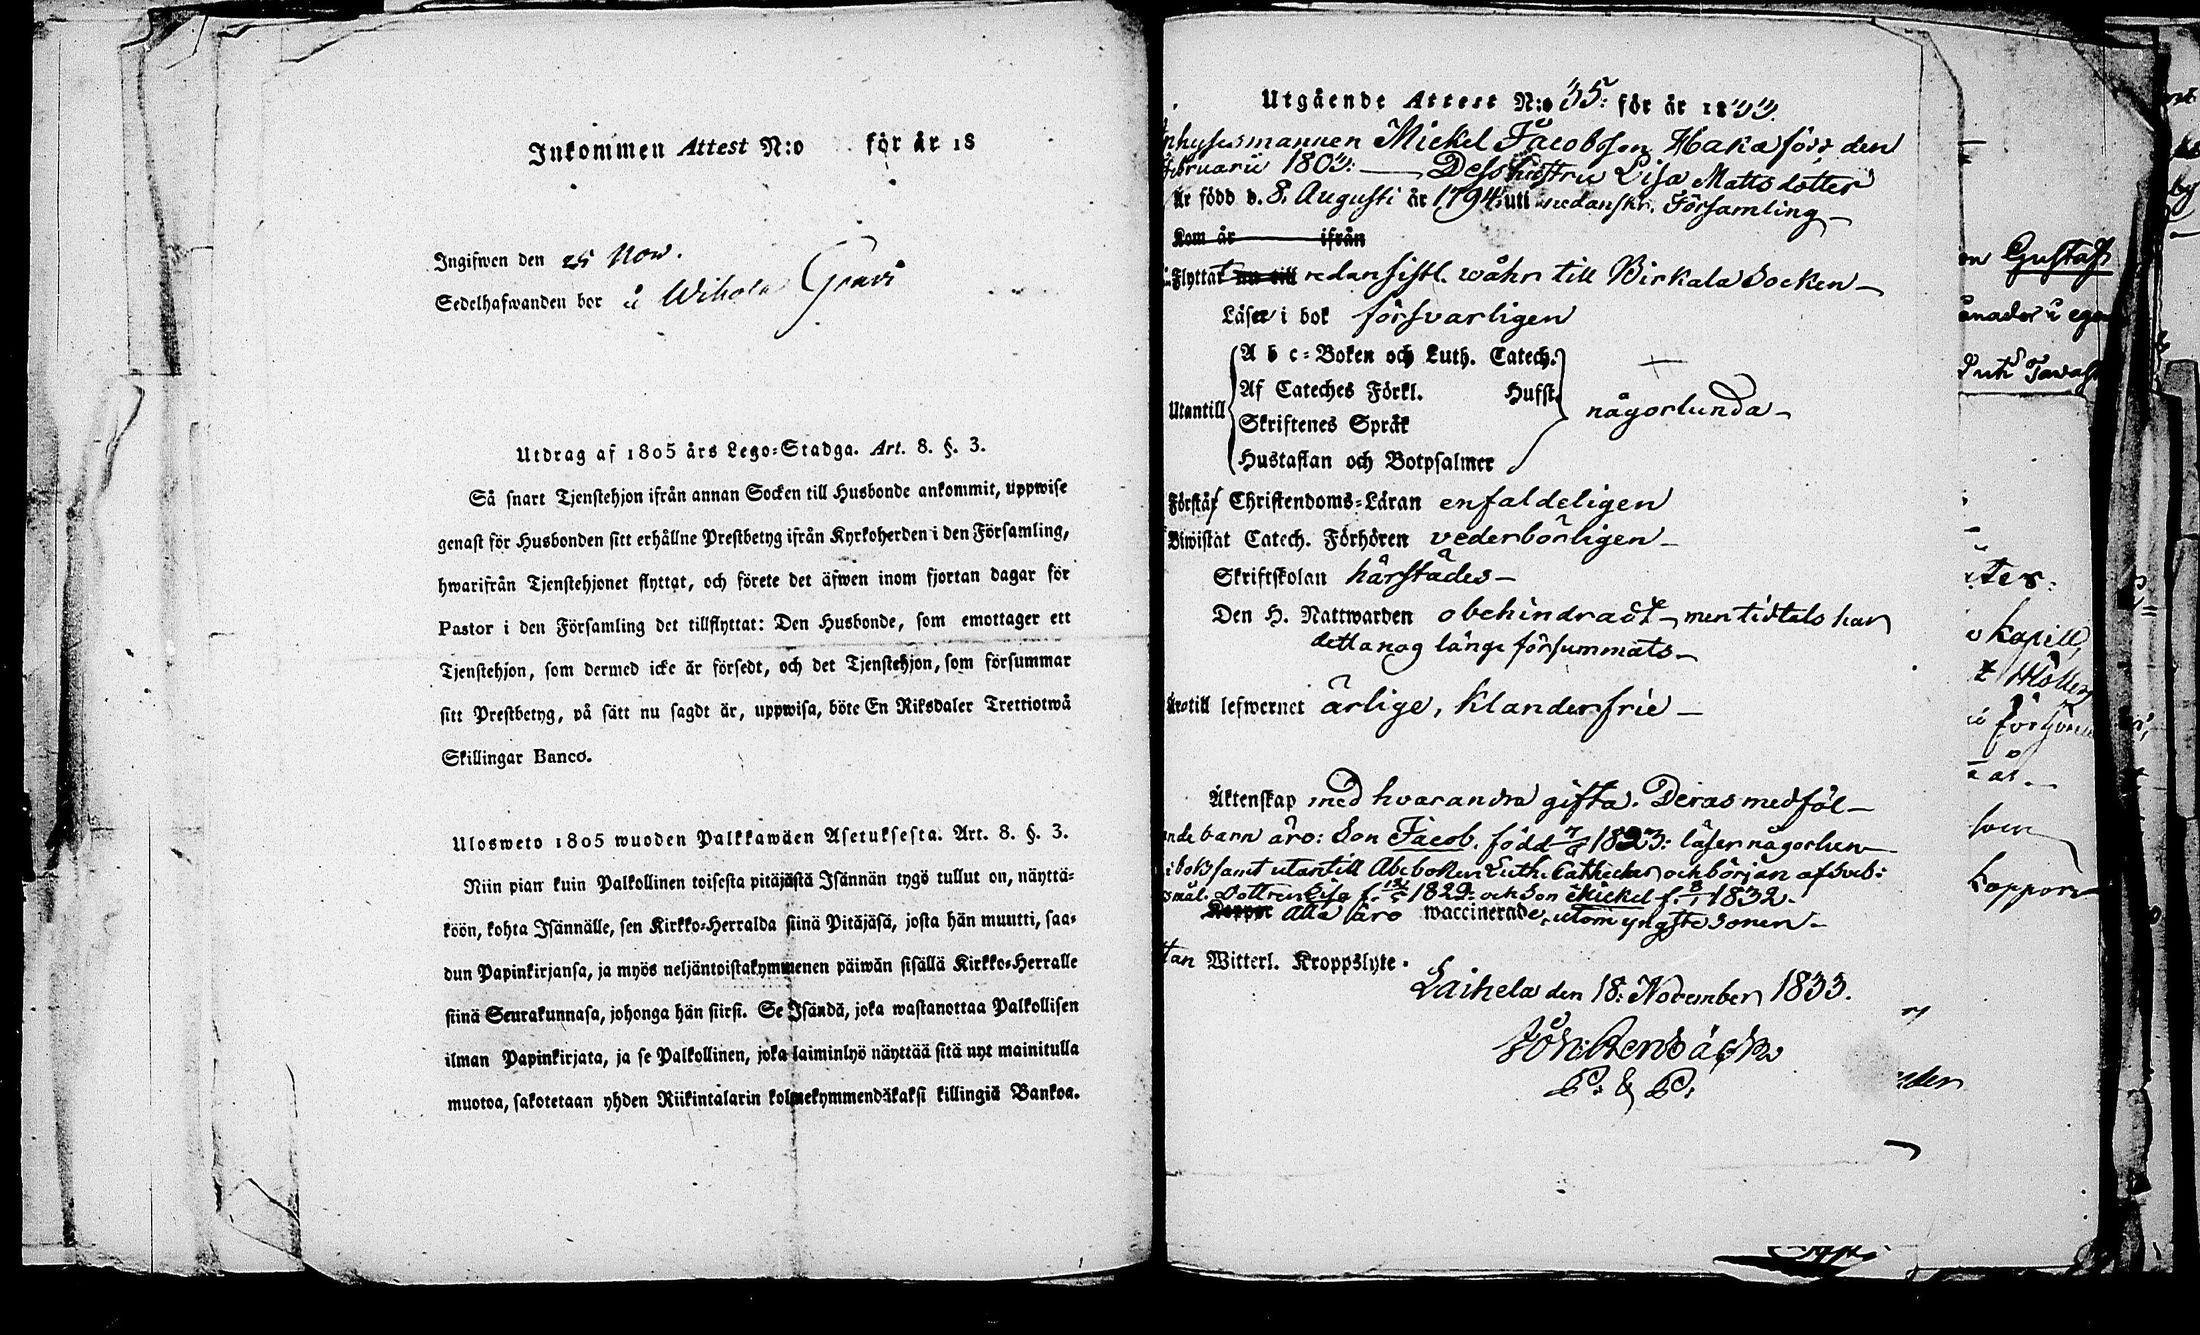 Inkommen Attest N:o för år 18
Ingifwen den 25 Nov.
Sedelhafwanden bor å Wihola
Utdrag af 1805 års Lego-Stadga. Art. 8. §. 3.
Så snart Tjenstehjon ifrån annan Socken till Husbonde ankommit, uppwise
genast för Husbonden sitt erhållne Prestbetyg ifrån Kyrkoherden i den Församling,
hwarifrån Tjenstehjonet flyttat, och förete det äfwen inom fjortan dagar för
Pastor i den Församling det tillflyttat: Den Husbonde, som emottager ett
Tjenstehjon, som dermed icke är försedt, och det Tjenstehjon, som försummar
sitt Prestbetyg, på sätt nu sagdt är, uppwisa, böte En Riksdaler Trettiotwå
Skillingar Banco.
Ulosweto 1805 wuoden Palkkawäen Asetuksesta. Art. 8. §. 3.
Niin pian kuin Palkollinen toisesta pitäjästä Isännän tygö tullut on, näyttä-
köön, kohta Isännälle, sen Kirkko-Herralda siinä Pitäjäsä, josta hän muutti, saa-
dun Papinkirjansa, ja myös neljäntoistakymmenen päiwän sisällä Kirkko-Herralle
siinä Seurakunnasa, johonga hän siirsi. Se Isändä, joka wastanottaa Palkollisen
ilman Papinkirjata, ja se Palkollinen, joka laiminlyö näyttää sitä nyt mainitulla
muotoa, sakotetaan yhden Riikintalarin kolmekymmendäkaksi killingiä Bankoa.
Utgående Attest N:o 35: för år 1833.
physesmannen Mickel Jacobsson Haka född den
Februarii 1803: — Dess hustru Lisa Mattsdotter
Är född d. 8. Augusti år 1794. uti nedanskr. Församling —
Kom år ifrån
Flyttat nu till redan sistl. wåhr till Birkala Socken —
Läser i bok försvarligen
Utantill
A b c-Boken och Luth. Catech.
Af Cateches Förkl. Husst.
Skriftenes Språk
Hustaflan och Botpsalmer
någorlunda —
Förstår Christendoms-Läran enfaldeligen
Biwistat Catech. Förhören vederbörligen —
Skriftskolan härstädes —
Den H. Nattwarden obehindradt — men tidtals har
detta nog länge försummats —
Äro till lefwernet ärlige, klanderfrie —
Äktenskap med hvarandra gifta. Deras medföl-
ande barn äro: Son Jacob, född 7/9 1823: läser någorlun-
i bok samt utantill Abcboken Luth. Catheches och början af Sveb:
smål. Dottren Lisa f. 1829: och Son Mickel f. 8/1 1832.
Koppor Alla äro waccinerade, utom yngste sonen —
tan Witterl. Kroppslyte.
Laihela den 18: November 1833.
P. & P.
Gustaf